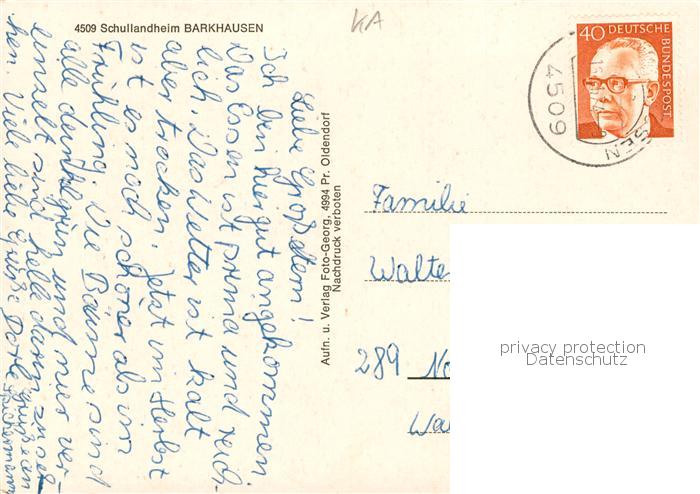 4509 Schullandheim BARKHAUSEN
KA
40 DEUTSCHE
BUNDESPOST
4509
SEN
Liebe Großeltern!
Ich bin hier gut angekommen.
Das Essen ist prima und reich-
lich. Das Wetter ist kalt
aber trocken. Jetzt im Herbst
ist es noch schöner als im
Frühling. Die Bäume sind
alle dunkelgrün und nur ver-
einzelt sind helle dazw
hen. Viele liebe Grüße
Aufn. u. Verlag Foto-Georg, 4994 Pr. Oldendorf
Nachdruck verboten
Familie
Walte
289 No
Wa
privacy protection
DelcampeProtection.com